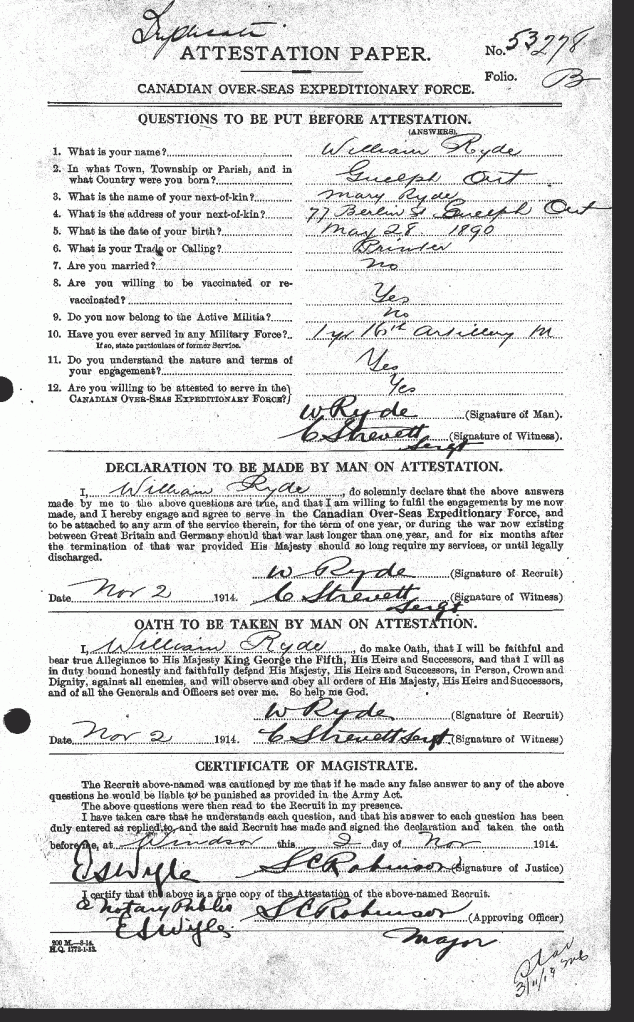 Triplicate
ATTESTATION PAPER.
No. 53278
Folio. B
CANADIAN OVER-SEAS EXPEDITIONARY FORCE.
QUESTIONS TO BE PUT BEFORE ATTESTATION.
(ANSWERS).
1. What is your name? William Ryde
2. In what Town, Township or Parish, and in
what Country were you born? Guelph Ont
3. What is the name of your next-of-kin? Mary Ryde
4. What is the address of your next-of-kin? 77 Berlin St. Guelph Ont
5. What is the date of your birth? May 28. 1890
6. What is your Trade or Calling? Printer
7. Are you married? no
8. Are you willing to be vaccinated or re-
vaccinated? Yes
9. Do you now belong to the Active Militia? no
10. Have you ever served in any Military Force? 1 yr 16th Artillery M
If so, state particulars of former Service.
11. Do you understand the nature and terms of
your engagement? Yes
12. Are you willing to be attested to serve in the
CANADIAN OVER-SEAS EXPEDITIONARY FORCE? Yes
W Ryde (Signature of Man).
C Strevett Sergt (Signature of Witness).
DECLARATION TO BE MADE BY MAN ON ATTESTATION.
I, William Ryde, do solemnly declare that the above answers
made by me to the above questions are true, and that I am willing to fulfil the engagements by me now
made, and I hereby engage and agree to serve in the Canadian Over-Seas Expeditionary Force, and
to be attached to any arm of the service therein, for the term of one year, or during the war now existing
between Great Britain and Germany should that war last longer than one year, and for six months after
the termination of that war provided His Majesty should so long require my services, or until legally
discharged.
W Ryde (Signature of Recruit)
Date Nov 2 1914. C Strevett Sergt (Signature of Witness)
OATH TO BE TAKEN BY MAN ON ATTESTATION.
I, William Ryde, do make Oath, that I will be faithful and
bear true Allegiance to His Majesty King George the Fifth, His Heirs and Successors, and that I will as
in duty bound honestly and faithfully defend His Majesty, His Heirs and Successors, in Person, Crown and
Dignity, against all enemies, and will observe and obey all orders of His Majesty, His Heirs and Successors,
and of all the Generals and Officers set over me. So help me God.
W Ryde (Signature of Recruit)
Date Nov 2 1914. C Strevett Sergt (Signature of Witness)
CERTIFICATE OF MAGISTRATE.
The Recruit above-named was cautioned by me that if he made any false answer to any of the above
questions he would be liable to be punished as provided in the Army Act.
The above questions were then read to the Recruit in my presence.
I have taken care that he understands each question, and that his answer to each question has been
duly entered as replied to, and the said Recruit has made and signed the declaration and taken the oath
before me, at Windsor this 2 day of Nov 1914.
E S Wigle S C Robinson (Signature of Justice)
I certify that the above is a true copy of the Attestation of the above-named Recruit.
a Notary Public S C Robinson (Approving Officer)
E S Wigle Major
200 M.—8-14.
H.Q. 1772-1-13.